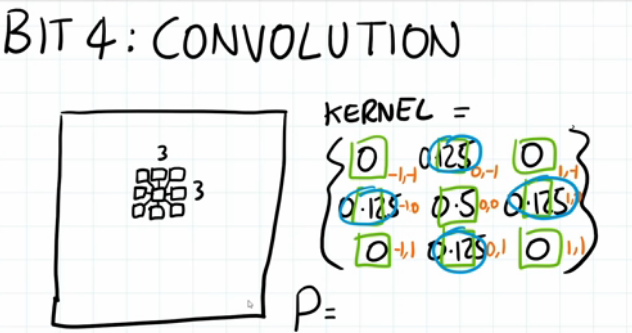 BIT 4: CONVOLUTION
KERNEL =
3
3
0 -1,-1 0.125 0,-1 0 1,-1
0.125 -1,0 0.5 0,0 0.125 1,
0 -1,1 0.125 0,1 0 1,1
P=